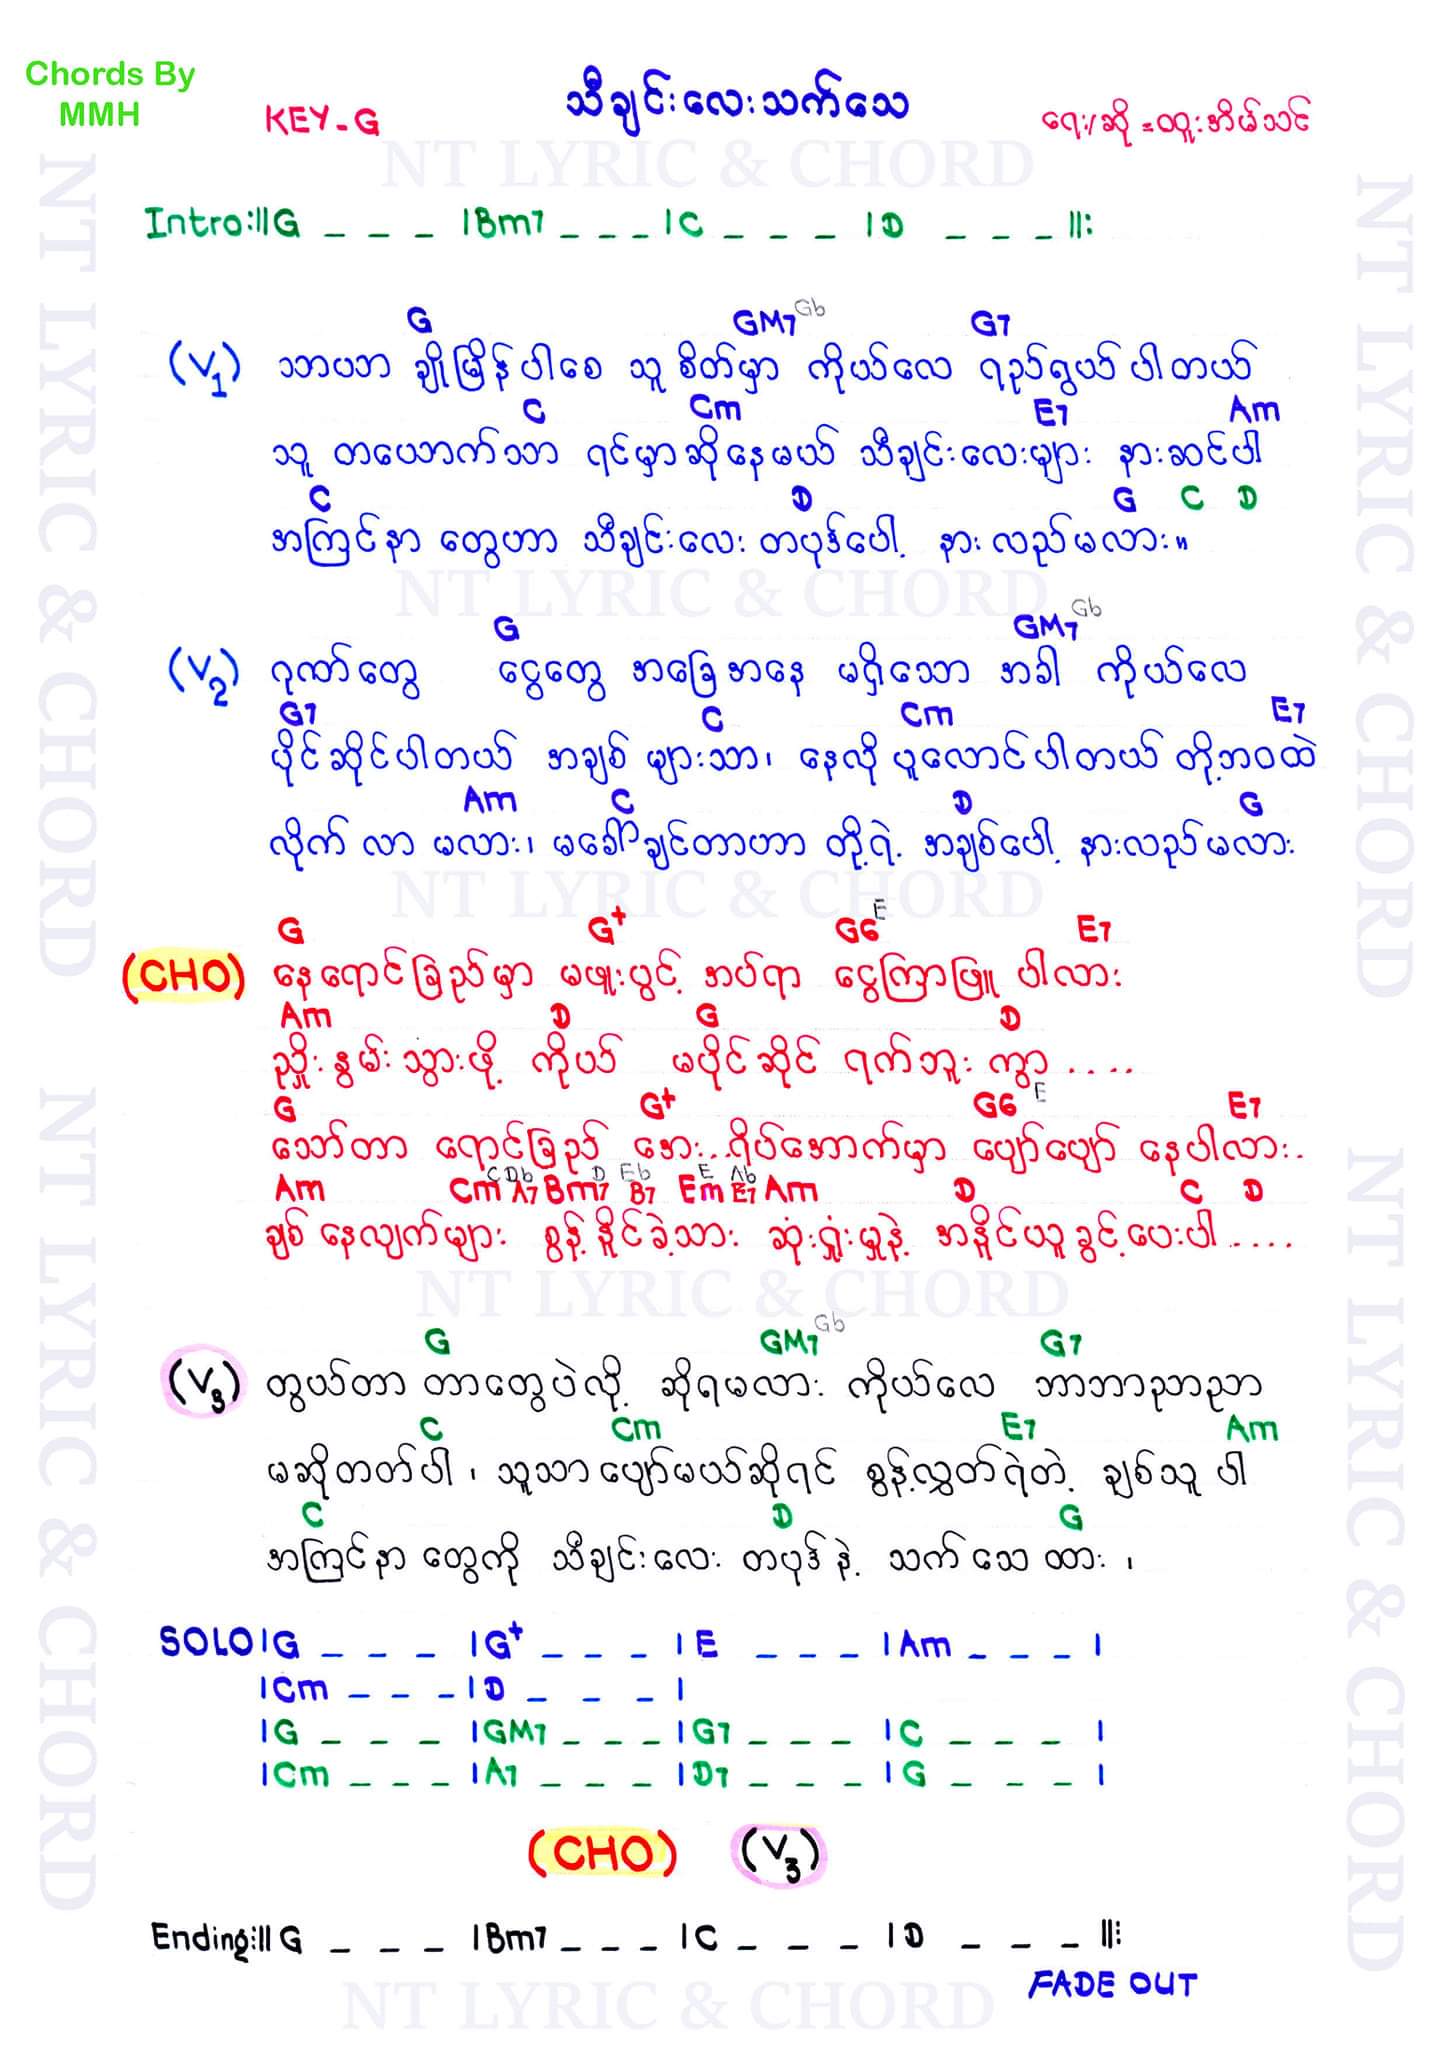 Chords By
MMH
KEY-G
သီချင်းလေးသက်သေ
ရေး/ဆို = ထူးအိမ်သင်
NT LYRIC & CHORD
Intro:||G _ _ _ |Bm7 _ _ _ |C _ _ _ |D _ _ _ ||:
G GM7 Gb G7
(V1) ဘာပဘာ ချိုမြိန်ပါစေ သူ့စိတ်မှာ ကိုယ်လေ ရည်ရွယ်ပါတယ်
C Cm E7 Am
သူ တယောက်သာ ရင်မှာဆိုနေမယ် သီချင်းလေးများ နားဆင်ပါ
C D G C D
အကြင်နာ တွေဟာ သီချင်းလေး တပုဒ်ပေါ့ နားလည်မလား။
NT LYRIC & CHORD
G GM7 Gb
(V2) ဂုဏ်တွေ ငွေတွေ အခြေအနေ မရှိသော အခါ ကိုယ်လေ
G7 C Cm E7
ပိုင်ဆိုင်ပါတယ် အချစ်များသာ၊ နေလို ပူလောင်ပါတယ် တို့ဘဝထဲ
Am C D G
လိုက်လာ မလား၊ မခေါ်ချင်တာဟာ တို့ရဲ့ အချစ်ပေါ့ နားလည်မလား
NT LYRIC & CHORD
G G+ G6 E E7
(CHO) နေရောင်ခြည်မှာ မဖူးပွင့် အပ်ရာ ငွေကြာဖြူ ပါလား
Am D G D
ညှိုးနွမ်းသွားဖို့ ကိုယ် မပိုင်ဆိုင် ရက်ဘူး ကွာ ....
G G+ G6 E E7
သော်တာ ရောင်ခြည် အေး..ရိပ်အောက်မှာ ပျော်ပျော် နေပါလား.
Am Cm C Db A7 Bm7 D Eb B7 Em E Ab E7 Am D C D
ချစ်နေလျက်များ စွန့်နိူင်ခဲ့သား ဆုံးရှုံးမှုနဲ့ အနိူင်ယူခွင့်ပေးပါ ....
NT LYRIC & CHORD
G GM7 Gb G7
(V3) တွယ်တာ တာတွေပဲလို့ ဆိုရမလား ကိုယ်လေ ဘာဘာညာညာ
C Cm E7 Am
မဆိုတတ်ပါ၊ သူသာပျော်မယ်ဆိုရင် စွန့်လွှတ်ရဲတဲ့ ချစ်သူပါ
C D G
အကြင်နာတွေကို သီချင်းလေး တပုဒ်နဲ့ သက်သေထား၊
SOLO|G _ _ _ |G+ _ _ _ |E _ _ _ |Am _ _ _ |
|Cm _ _ _ |D _ _ _ |
|G _ _ _ |GM7 _ _ _ |G7 _ _ _ |C _ _ _ |
|Cm _ _ _ |A7 _ _ _ |D7 _ _ _ |G _ _ _ |
(CHO) (V3)
Ending:||G _ _ _ |Bm7 _ _ _ |C _ _ _ |D _ _ _ ||:
FADE OUT
NT LYRIC & CHORD
NT LYRIC & CHORD
NT LYRIC & CHORD
NT LYRIC & CHORD
NT LYRIC & CHORD